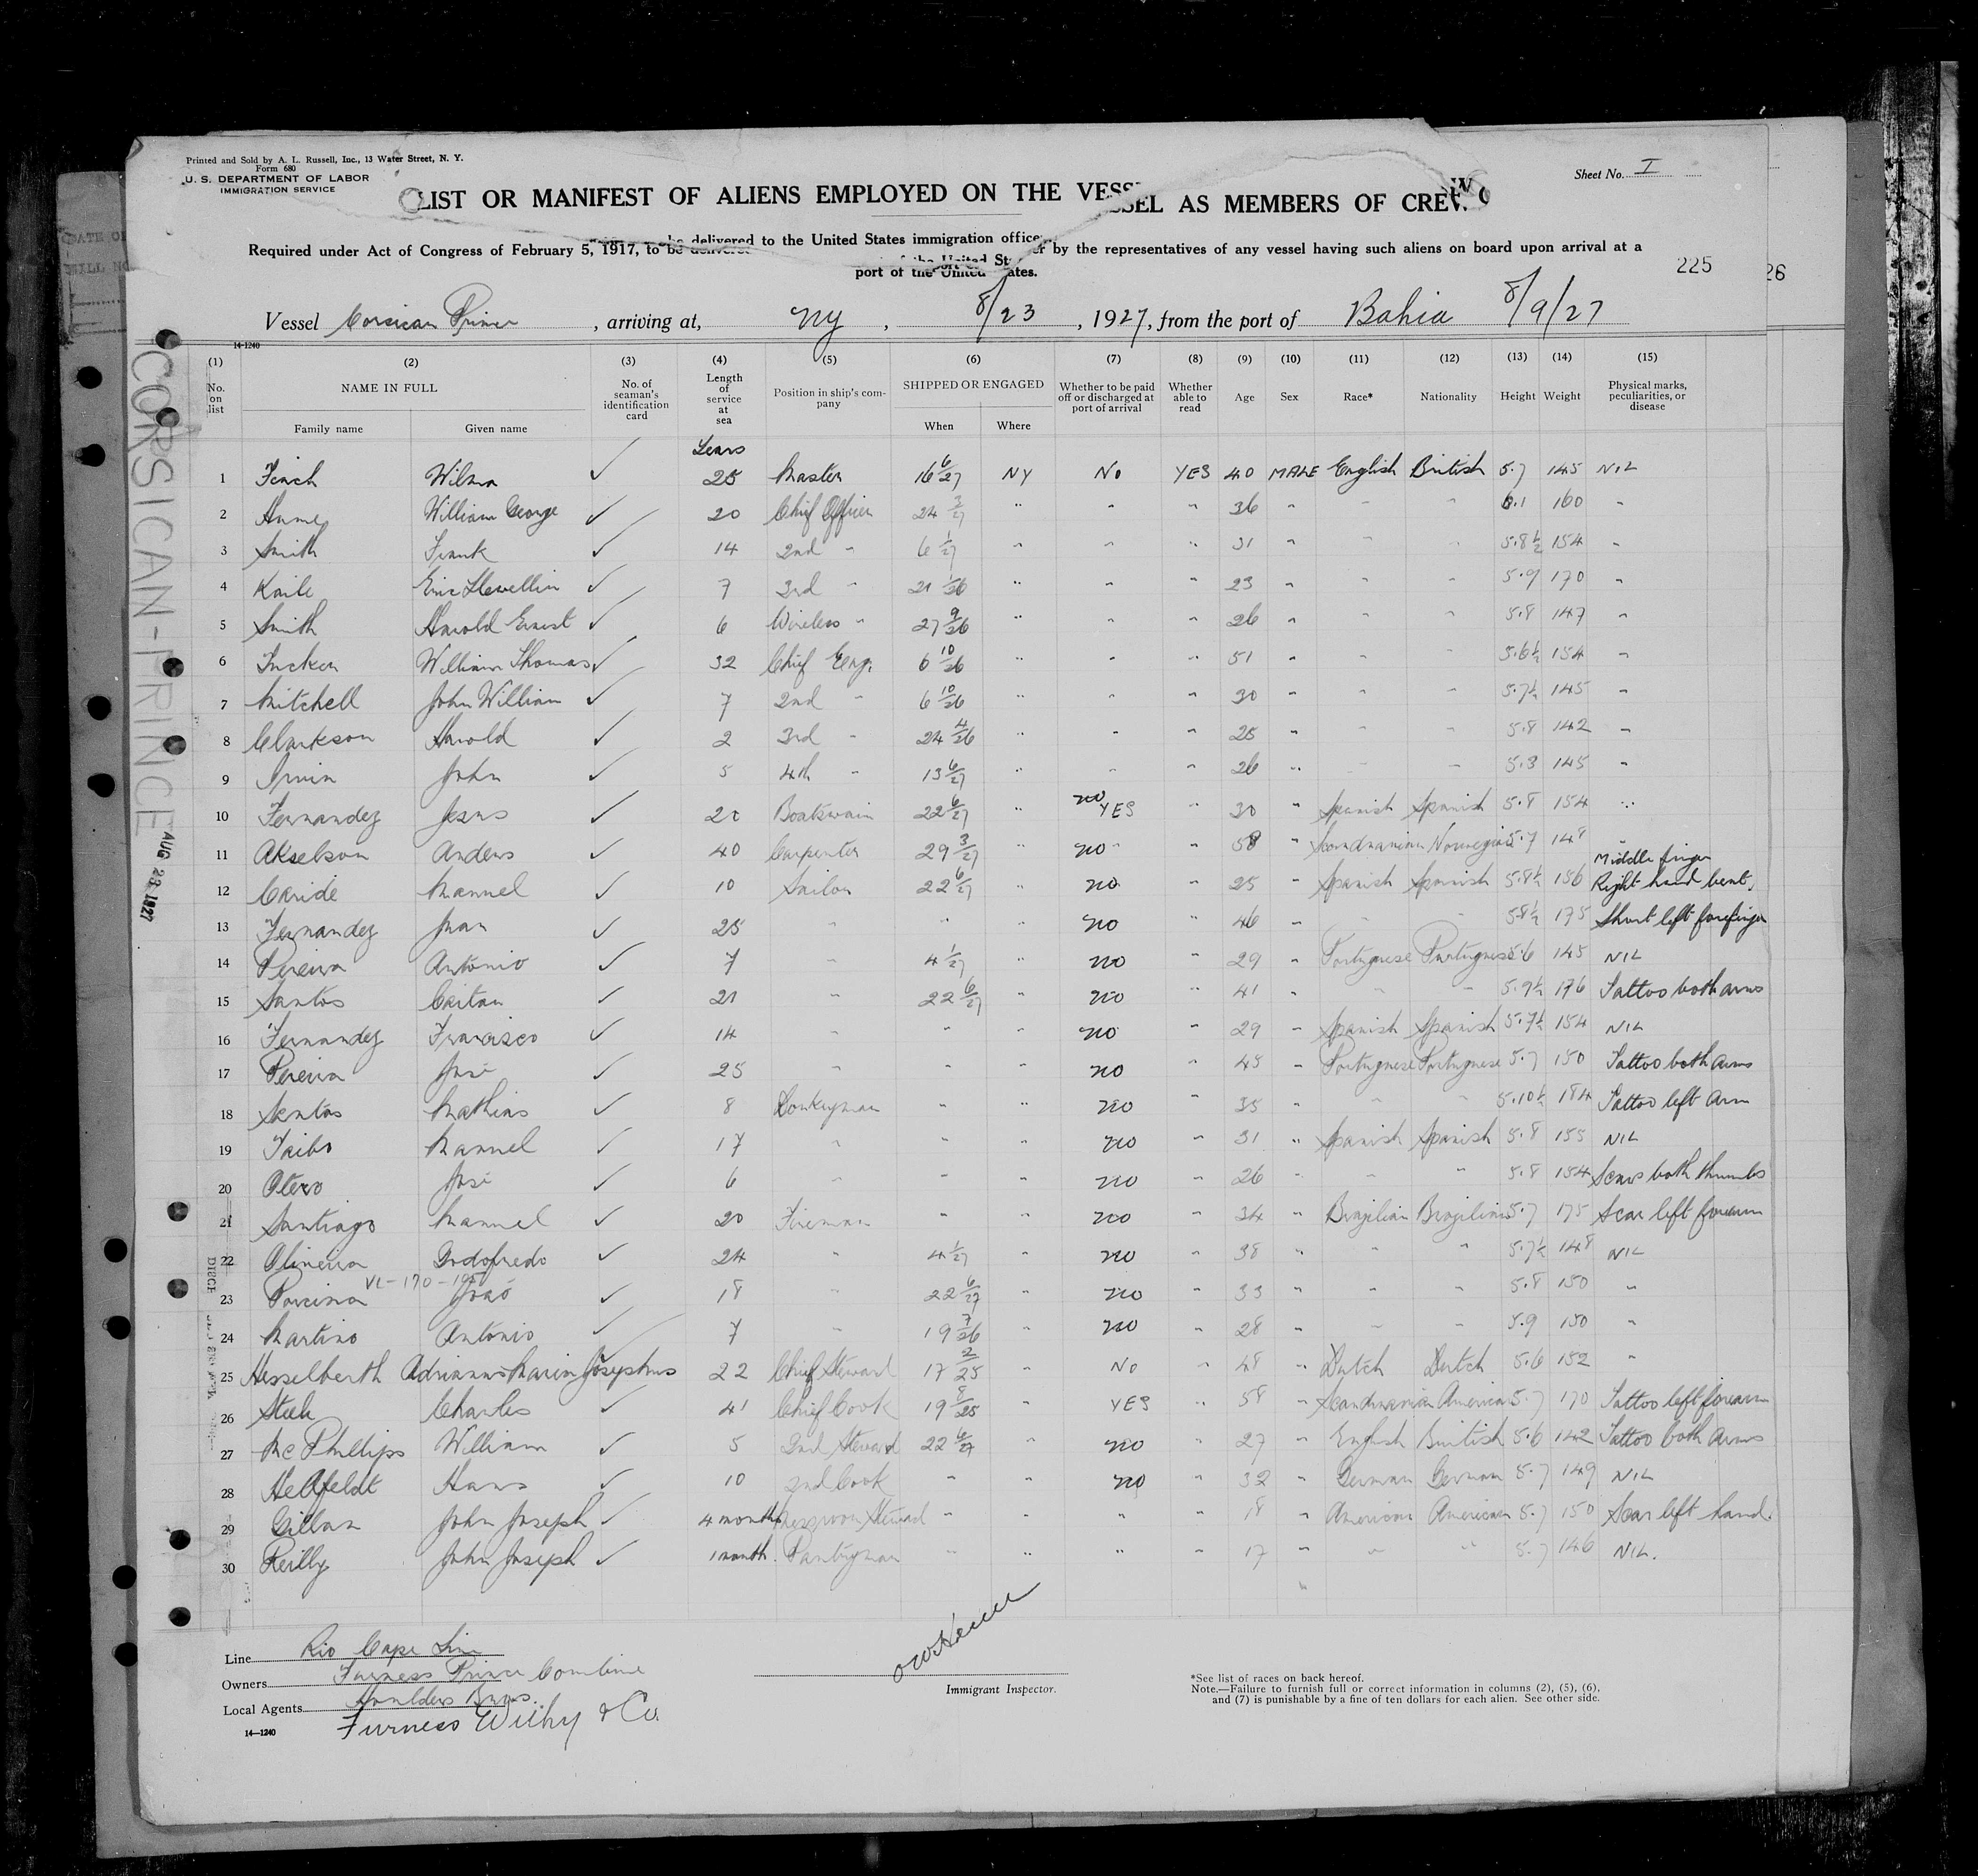 Printed and Sold by A. L. Russell, Inc., 13 Water Street, N. Y.
Form 680
U. S. DEPARTMENT OF LABOR
IMMIGRATION SERVICE
Sheet No. I
LIST OR MANIFEST OF ALIENS EMPLOYED ON THE VESSEL AS MEMBERS OF CREW
Required under Act of Congress of February 5, 1917, to be delivered to the United States immigration officer by the representatives of any vessel having such aliens on board upon arrival at a
port of the United States.
225
26
Vessel Corsican Prince, arriving at, NY, 8/23, 1927, from the port of Bahia 8/9/27
14-1240
(1) (2) (3) (4) (5) (6) (7) (8) (9) (10) (11) (12) (13) (14) (15)
No. on list NAME IN FULL Family name Given name No. of seaman's identification card Length of service at sea Position in ship's company SHIPPED OR ENGAGED When Where Whether to be paid off or discharged at port of arrival Whether able to read Age Sex Race* Nationality Height Weight Physical marks, peculiarities, or disease
Years
1 Finch ✓ 25 Master 16 6/27 NY No YES 40 MALE English British 5.7 145 NIL
2 William George ✓ 20 Chief Officer 24 3/27 " " " 36 " " " 6.1 160 "
3 Smith Frank ✓ 14 2nd " 6 1/27 " " " 31 " " " 5.8½ 154 "
4 Eric Llewellin ✓ 7 3rd " 21 1/26 " " " 23 " " " 5.9 170 "
5 Smith Harold Ernest ✓ 6 Wireless " 27 9/26 " " " 26 " " " 5.8 147 "
6 Tucker William Thomas ✓ 32 Chief Eng. 6 10/26 " " " 51 " " " 5.6½ 154 "
7 Mitchell John William ✓ 7 2nd " 6 10/26 " " " 30 " " " 5.7½ 145 "
8 Clarkson Harold ✓ 2 3rd " 24 4/26 " " " 25 " " " 5.8 142 "
9 Irvin John ✓ 5 4th " 13 6/27 " " " 26 " " " 5.3 145 "
10 Fernandez Jesus ✓ 20 Boatswain 22 6/27 " no YES " 30 " Spanish Spanish 5.8 154 "
11 Akselson Anders ✓ 40 Carpenter 29 3/27 " no " 58 " Scandinavian Norwegian 5.7 148 "
12 Caride Manuel ✓ 10 Sailor 22 6/27 " no " 25 " Spanish Spanish 5.8½ 156 Middle finger Right hand bent,
13 Fernandez Juan ✓ 25 " " " no " 46 " " " 5.8½ 175 Short left forefinger
14 Pereira Antonio ✓ 7 " 4 1/27 " no " 29 " Portuguese Portuguese 5.6 145 NIL
15 Santos Caitan ✓ 21 " 22 6/27 " no " 41 " " " 5.9½ 176 Tattoo both arms
16 Fernandez Francisco ✓ 14 " " " no " 29 " Spanish Spanish 5.7½ 154 NIL
17 Pereira José ✓ 25 " " " no " 45 " Portuguese Portuguese 5.7 150 Tattoo both arms
18 Santos Mathias ✓ 8 Donkeyman " " no " 35 " " " 5.10½ 184 Tattoo left arm
19 Taibo Manuel ✓ 17 " " " no " 31 " Spanish Spanish 5.8 155 NIL
20 Otero José ✓ 6 " " " no " 26 " " " 5.8 154 Scars both thumbs
21 Santiago Manuel ✓ 20 Fireman " " no " 34 " Brazilian Brazilian 5.7 175 Scar left forearm
22 Oliveira Godofredo ✓ 24 " 4 1/27 " no " 38 " " " 5.7½ 148 NIL
23 João ✓ 18 " 22 6/27 " no " 33 " " " 5.8 150 "
24 Martino Antonio ✓ 7 " 19 7/26 " no " 28 " " " 5.9 150 "
25 Hesselberth Adrianus Marin Josephus 22 Chief Steward 17 2/25 " No " 48 " Dutch Dutch 5.6 152 "
26 Charles ✓ 41 Chief Cook 19 8/25 " YES " 58 " Scandinavian American 5.7 170 Tattoo left forearm
27 McPhillips William ✓ 5 2nd Steward 22 6/27 " no " 27 " English British 5.6 142 Tattoo both arms
28 Helfeldt Hans ✓ 10 2nd Cook " " no " 32 " German German 5.7 149 NIL
29 Gillan John Joseph ✓ 4 months Messroom Steward " " " " 18 " American American 5.7 150 Scar left hand.
30 Reilly John Joseph ✓ 1 month. Pantryman " " " " 17 " " " 5.7 146 NIL.
CORSICAN-PRINCE
AUG 23 1927
Line Rio Cape Line
Owners Furness Prince Combine
Local Agents Houlders Bros.
Furness Withy & Co.
14—1240
Immigrant Inspector.
*See list of races on back hereof.
Note.—Failure to furnish full or correct information in columns (2), (5), (6),
and (7) is punishable by a fine of ten dollars for each alien. See other side.